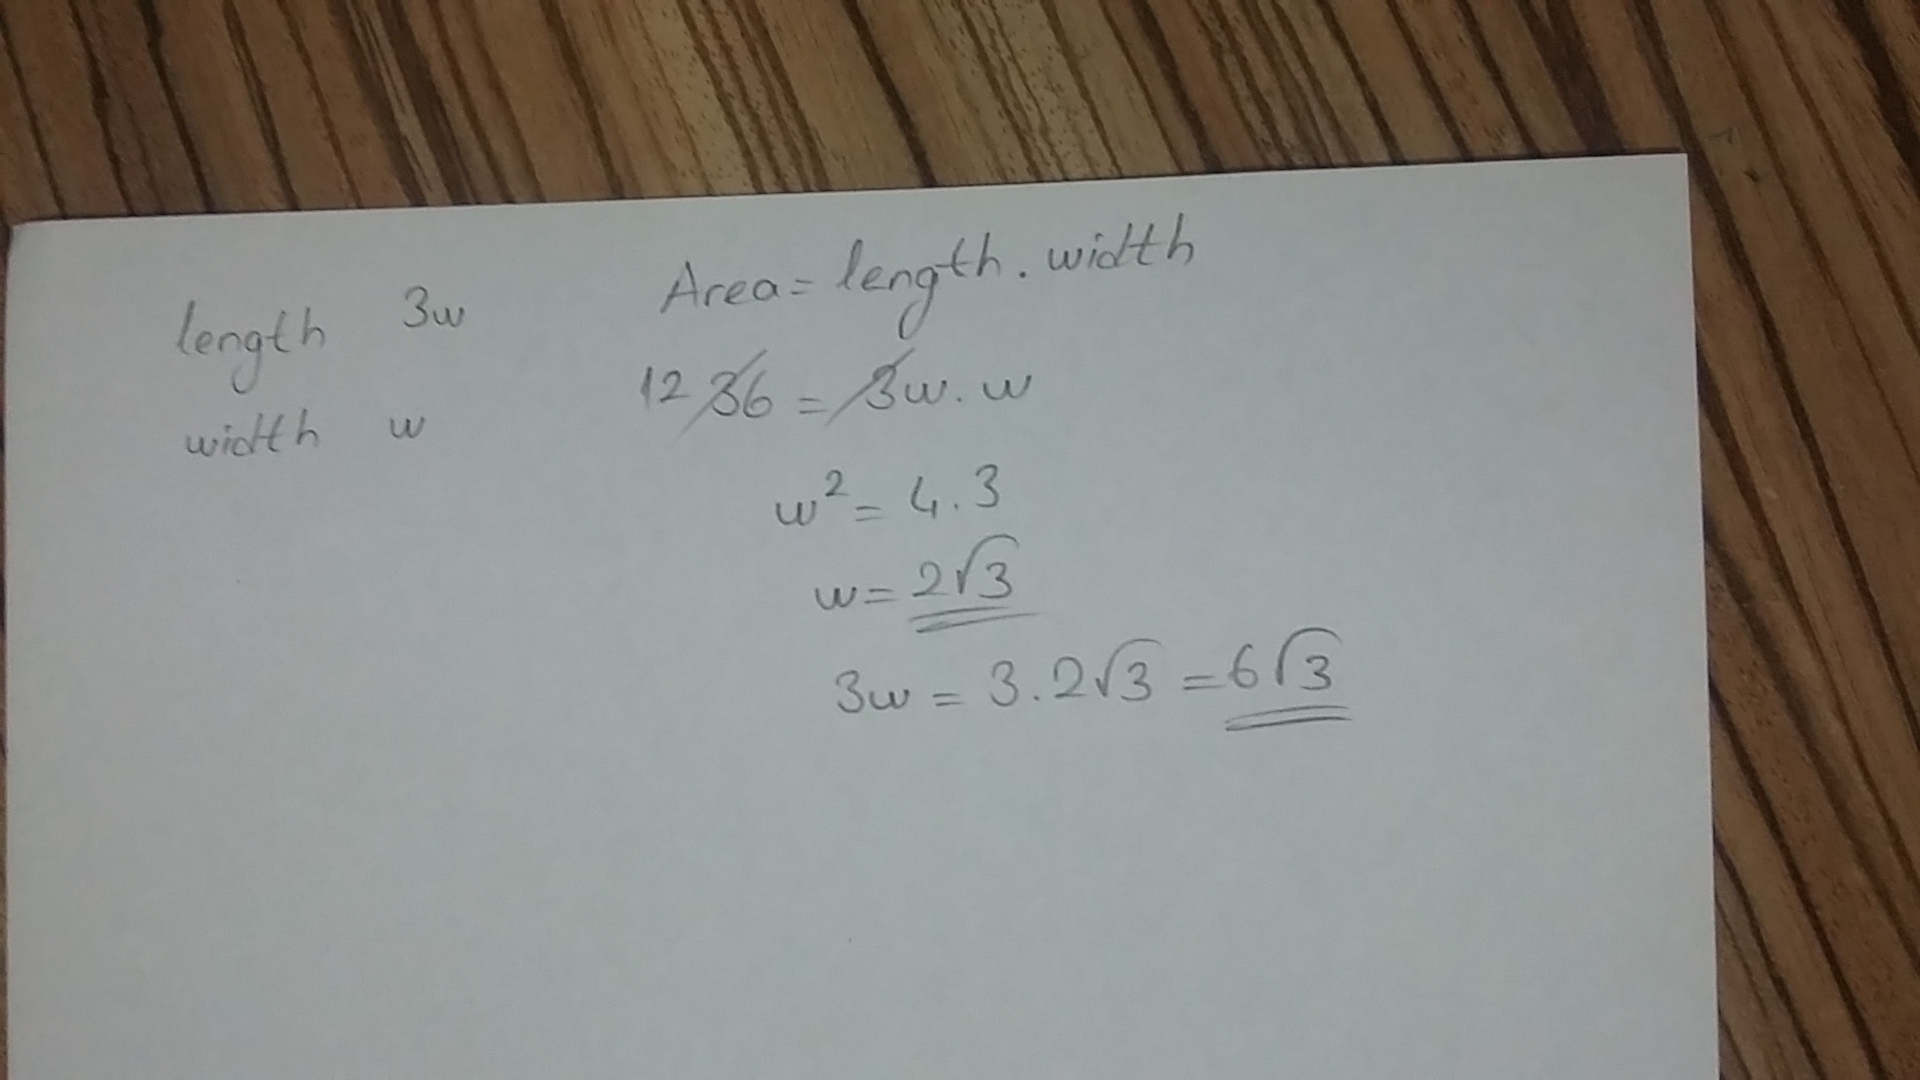 length 3w
width w
Area = length . width
12 36 = 3w . w
w² = 4 . 3
w = 2√3
3w = 3 . 2√3 = 6√3